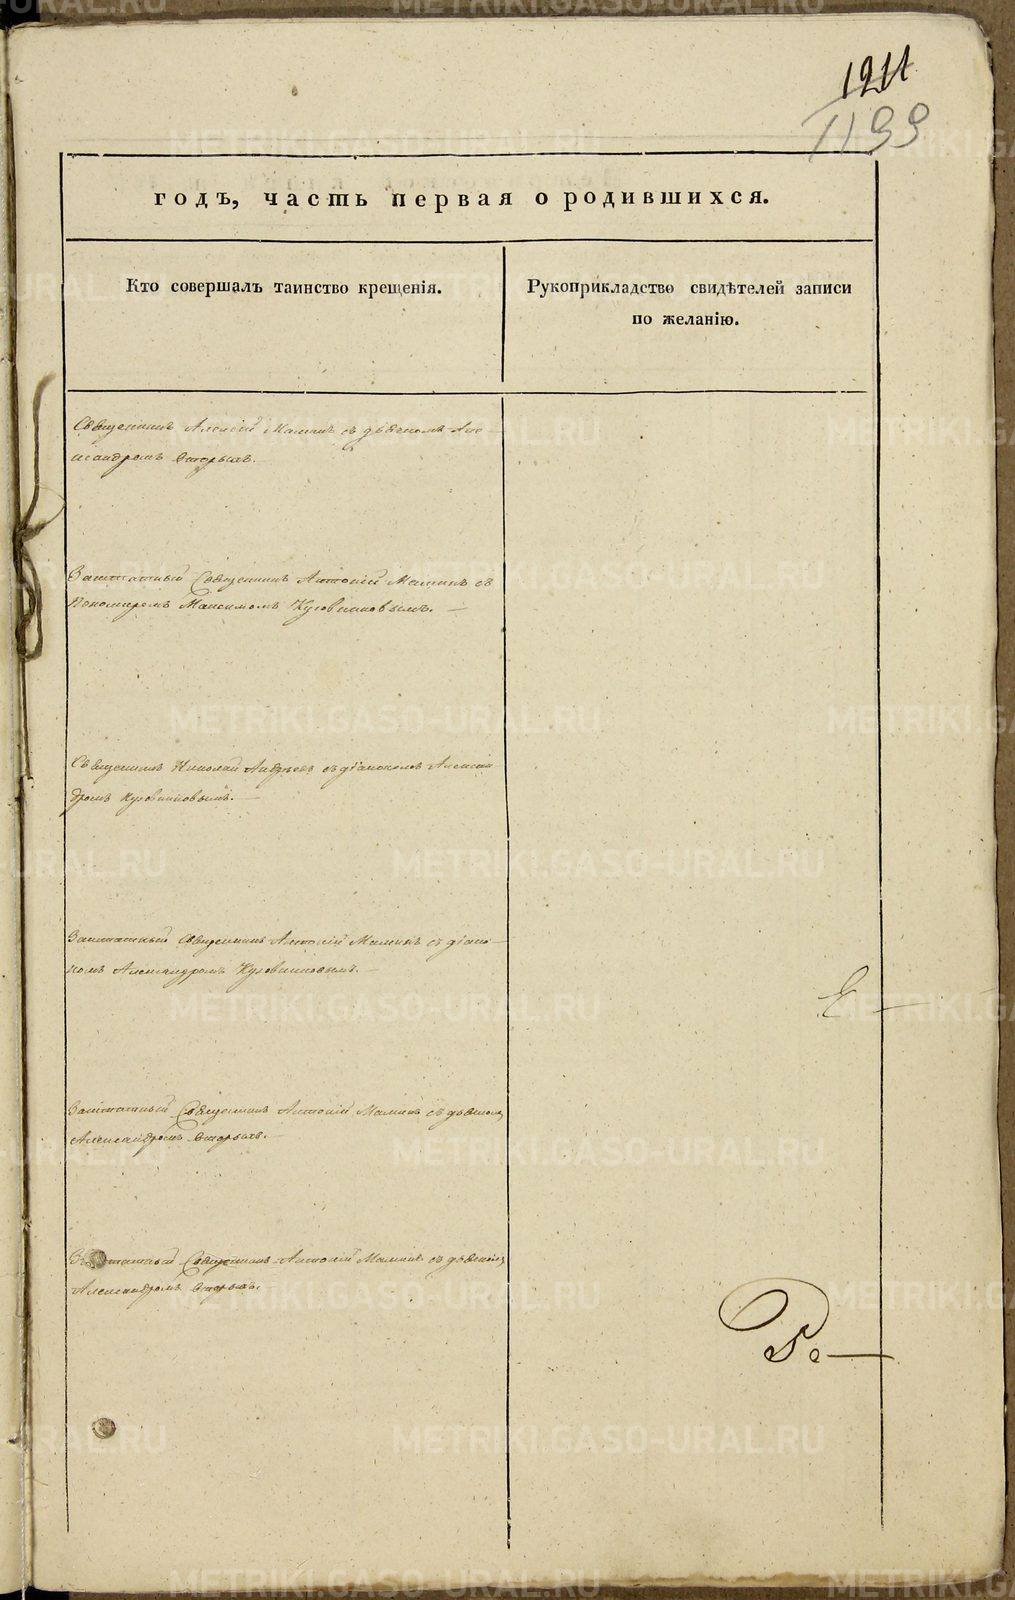 1211
1199
годъ, часть первая о родившихся.
Кто совершалъ таинство крещенія.
Рукоприкладство свидѣтелей записи
по желанію.
Священникъ Алексій Маминъ съ дьячкомъ Але-
ксандромъ Вторыхъ.
Заштатный Священникъ Антоній Маминъ съ
Пономаремъ Максимомъ Кузовниковымъ. —
Священникъ Николай Андреевъ съ діакономъ Алексан
дромъ Кузовниковымъ. —
Заштатный Священникъ Антоній Маминъ съ діако-
номъ Александромъ Кузовниковымъ. —
Заштатный Священникъ Антоній Маминъ съ дьячкомъ
Александромъ Вторыхъ. —
Заштатный Священникъ Антоній Маминъ съ дьячкомъ
Александромъ Вторыхъ.
METRIKI.GASO-URAL.RU